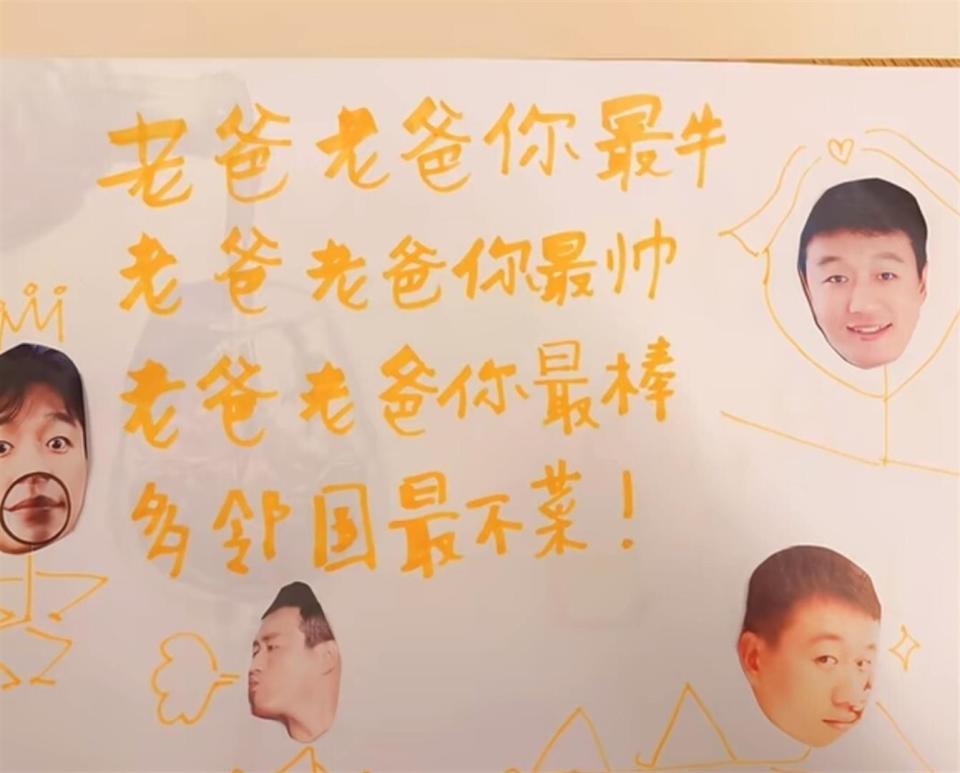 老爸老爸你最牛
老爸老爸你最帅
老爸老爸你最棒
多邻国最不菜！